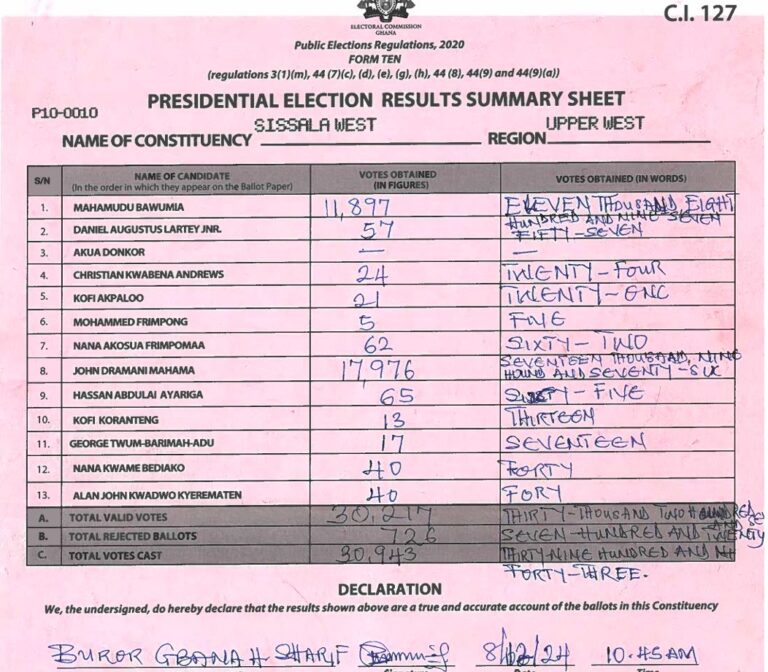 C.I. 127
ELECTORAL COMMISSION
GHANA
Public Elections Regulations, 2020
FORM TEN
(regulations 3(1)(m), 44 (7)(c), (d), (e), (g), (h), 44 (8), 44(9) and 44(9)(a))
P10-0010
PRESIDENTIAL ELECTION RESULTS SUMMARY SHEET
NAME OF CONSTITUENCY SISSALA WEST REGION UPPER WEST
S/N NAME OF CANDIDATE (In the order in which they appear on the Ballot Paper) VOTES OBTAINED (IN FIGURES) VOTES OBTAINED (IN WORDS)
1. MAHAMUDU BAWUMIA 11,897 ELEVEN THOUSAND EIGHT
HUNDRED AND NINE SEVEN
2. DANIEL AUGUSTUS LARTEY JNR. 57 FIFTY-SEVEN
3. AKUA DONKOR — —
4. CHRISTIAN KWABENA ANDREWS 24 TWENTY-FOUR
5. KOFI AKPALOO 21 TWENTY-ONE
6. MOHAMMED FRIMPONG 5 FIVE
7. NANA AKOSUA FRIMPOMAA 62 SIXTY-TWO
8. JOHN DRAMANI MAHAMA 17,976 SEVENTEEN THOUSAND, NINE
HUND AND SEVENTY-SIX
9. HASSAN ABDULAI AYARIGA 65 SIXTY-FIVE
10. KOFI KORANTENG 13 THIRTEEN
11. GEORGE TWUM-BARIMAH-ADU 17 SEVENTEEN
12. NANA KWAME BEDIAKO 40 FORTY
13. ALAN JOHN KWADWO KYEREMATEN 40 FORY
A. TOTAL VALID VOTES 30,217 THIRTY-THOUSAND TWO HUNDRED
B. TOTAL REJECTED BALLOTS 726 SEVEN HUNDRED AND TWENTY
C. TOTAL VOTES CAST 30,943 THIRTY-NINE HUNDRED AND
FORTY-THREE.
DECLARATION
We, the undersigned, do hereby declare that the results shown above are a true and accurate account of the ballots in this Constituency
SHARIF 8/12/24 10:45AM